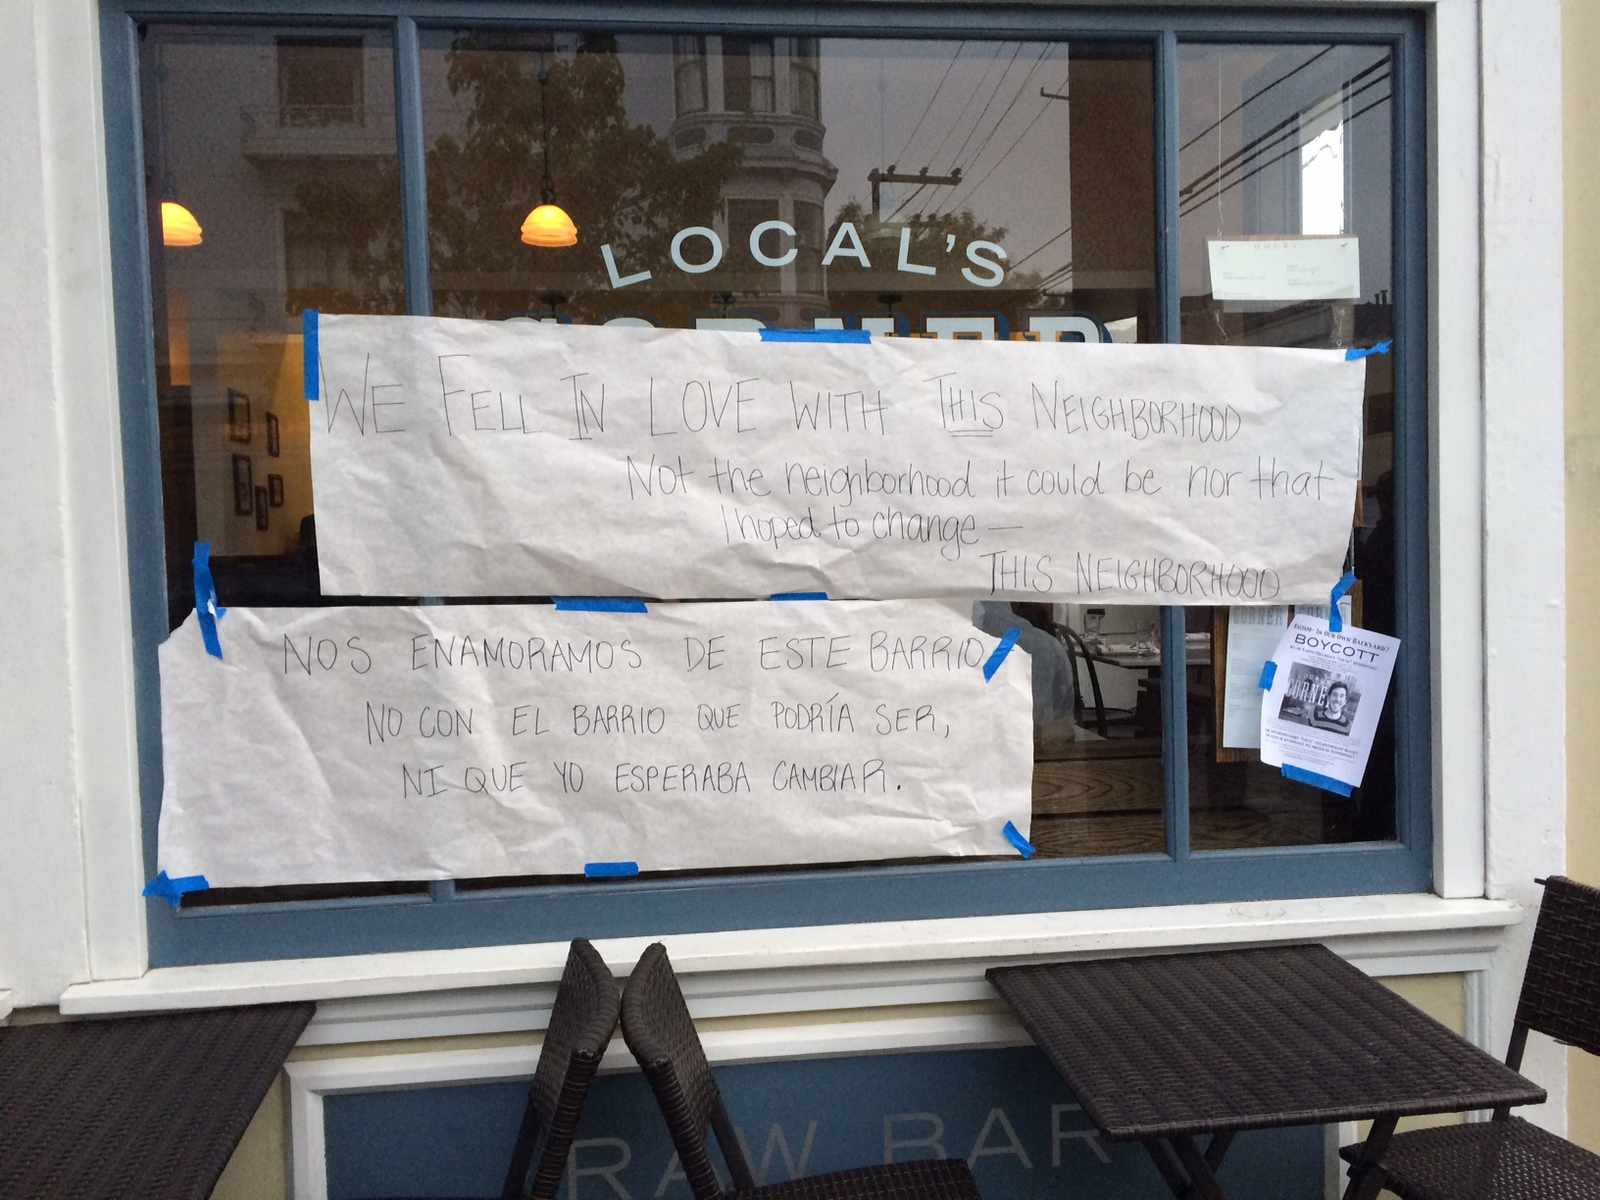 LOCAL'S
CORNER
WE FELL IN LOVE WITH THIS NEIGHBORHOOD
Not the neighborhood it could be nor that
I hoped to change —
THIS NEIGHBORHOOD
NOS ENAMORAMOS DE ESTE BARRIO
NO CON EL BARRIO QUE PODRÍA SER,
NI QUE YO ESPERABA CAMBIAR.
CORNER
IN OUR OWN BACKYARD?
BOYCOTT
CORNE
RAW BAR